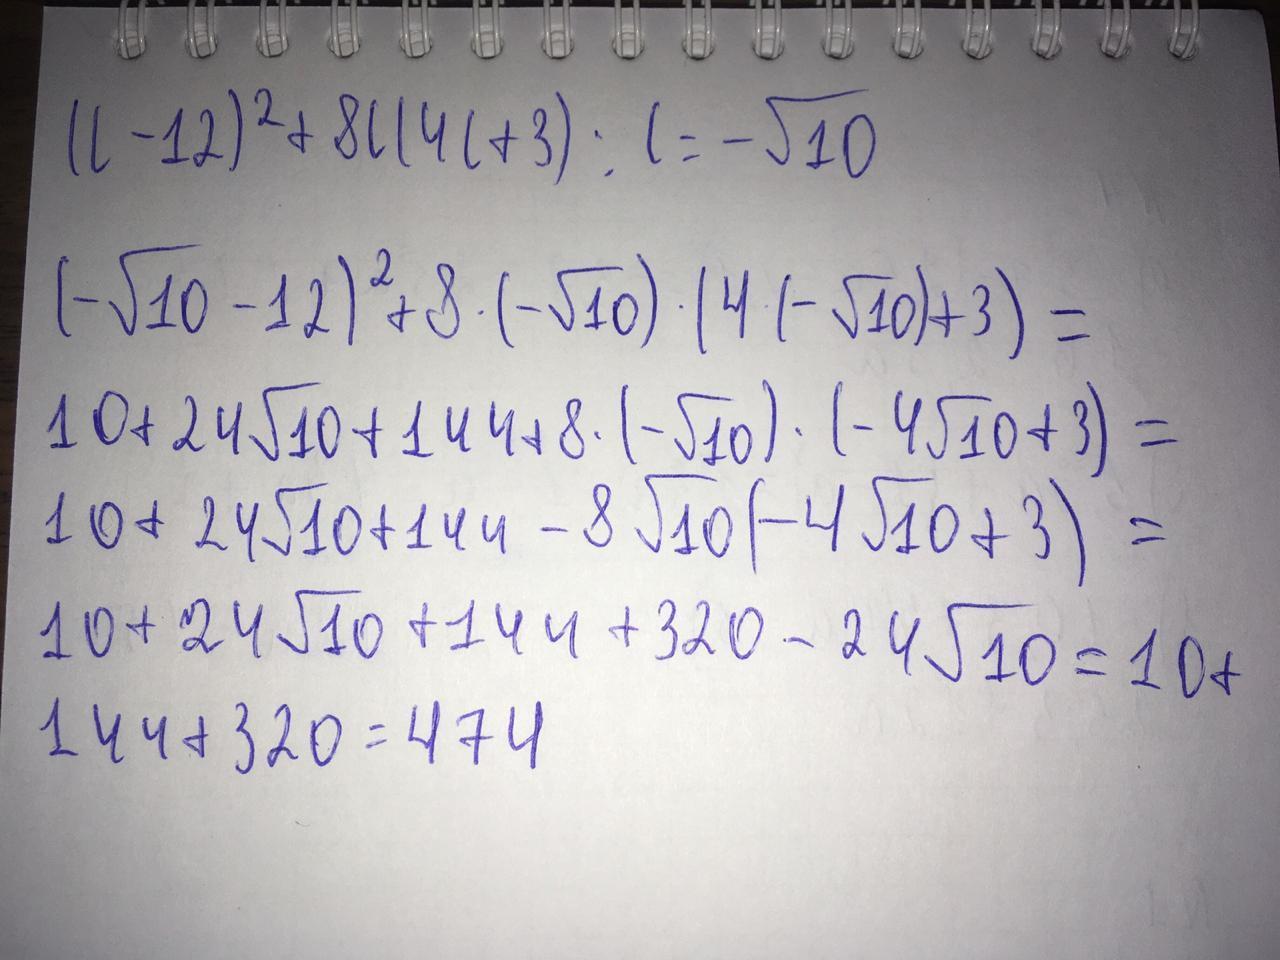 (l-12)²+8l(4l+3); l=-√10
(-√10-12)²+8·(-√10)·(4·(-√10)+3)=
10+24√10+144+8·(-√10)·(-4√10+3)=
10+24√10+144-8√10(-4√10+3)=
10+24√10+144+320-24√10=10+
144+320=474